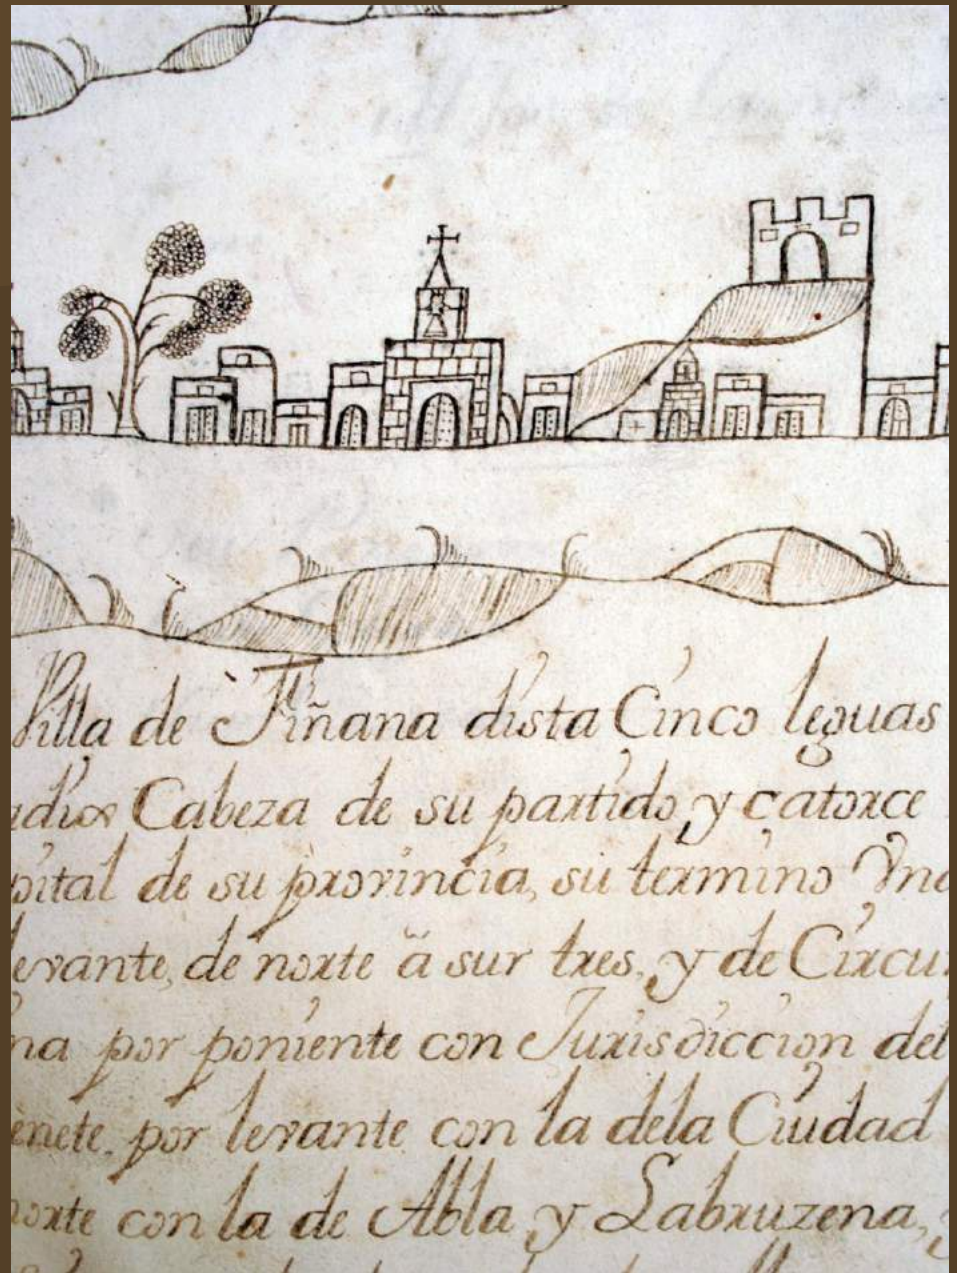 Villa de Fiñana dista Cinco leguas
adix Cabeza de su partido, y catorce
pital de su provincia, su termino Yna
levante, de norte â sur tres, y de Circu
na por poniente con Jurisdiccion del
enete, por levante con la dela Ciudad
norte con la de Abla y Labruzena,